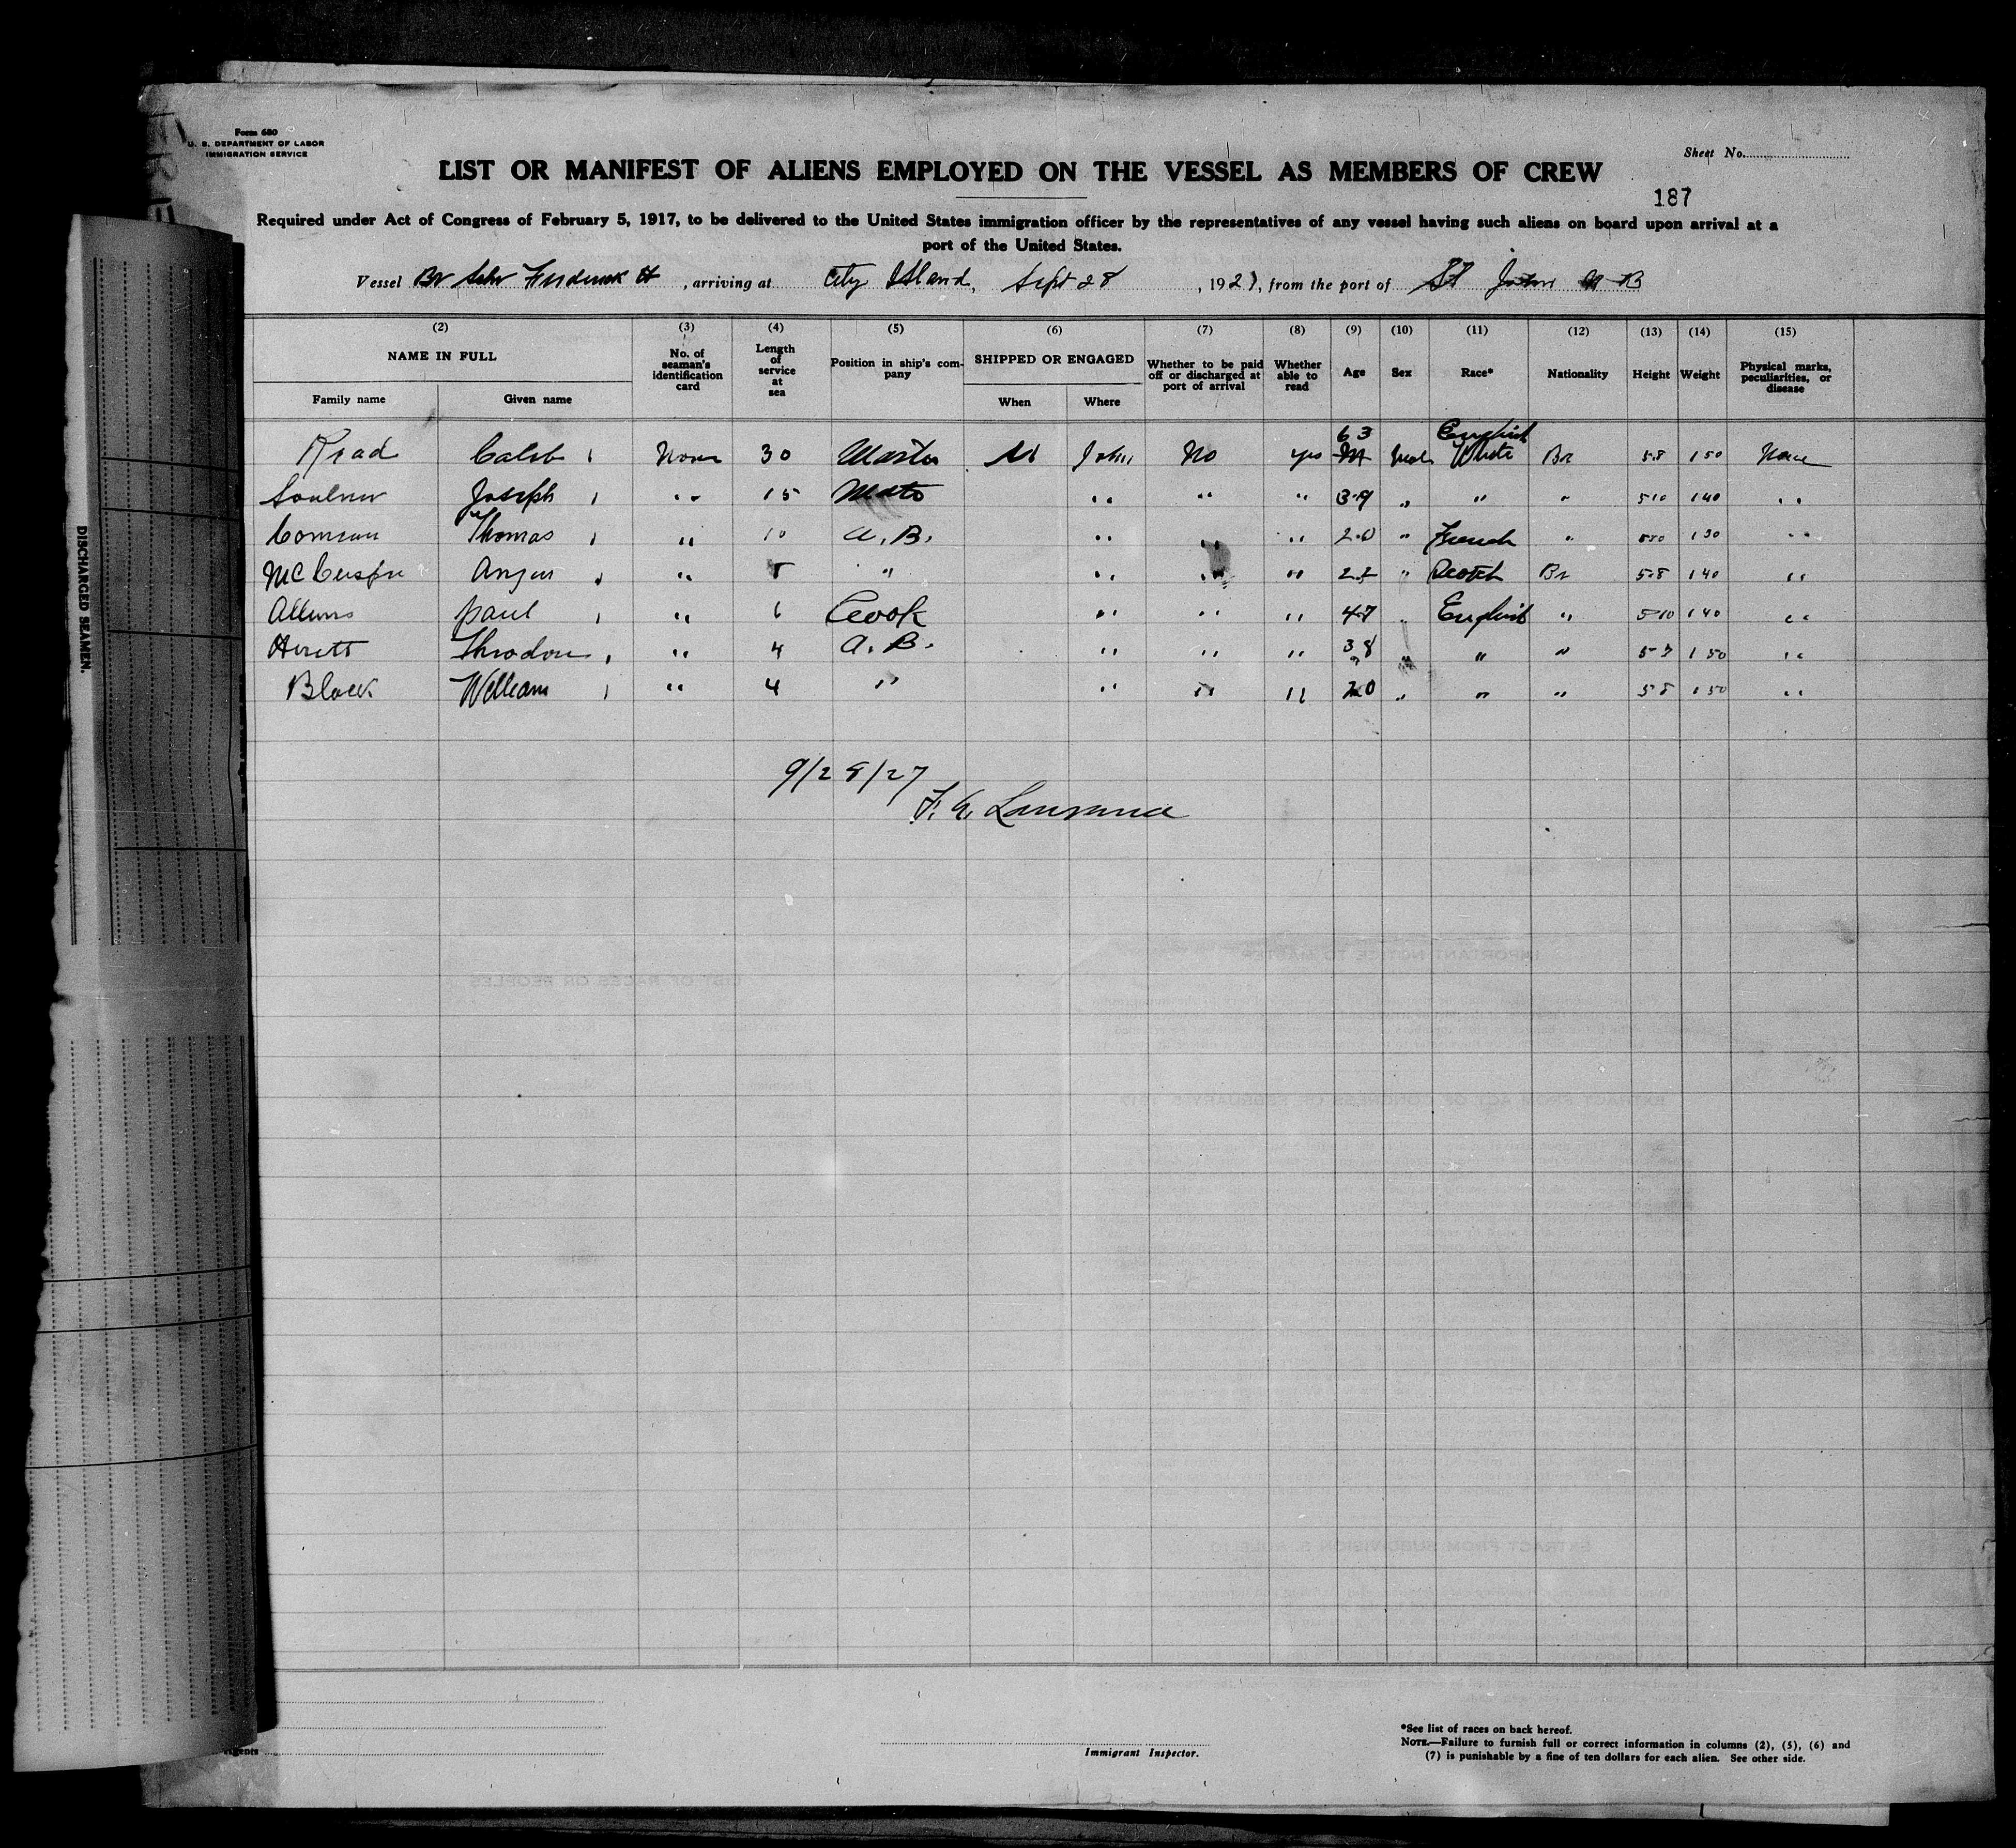 Form 680
U. S. DEPARTMENT OF LABOR
IMMIGRATION SERVICE
Sheet No.
LIST OR MANIFEST OF ALIENS EMPLOYED ON THE VESSEL AS MEMBERS OF CREW
187
Required under Act of Congress of February 5, 1917, to be delivered to the United States immigration officer by the representatives of any vessel having such aliens on board upon arrival at a
port of the United States.
Vessel Br Schr Frederick H , arriving at City Island, Sept 28 , 1927, from the port of St John N B
(2) (3) (4) (5) (6) (7) (8) (9) (10) (11) (12) (13) (14) (15)
NAME IN FULL Family name Given name No. of seaman's identification card Length of service at sea Position in ship's company SHIPPED OR ENGAGED When Where Whether to be paid off or discharged at port of arrival Whether able to read Age Sex Race* Nationality Height Weight Physical marks, peculiarities, or disease
63 English
Read Caleb None 30 Master St John No yes Male White Br 5-8 150 None
Joseph " 15 Mate " " " 39 " " " 5 10 140 "
Thomas " 10 A. B. " " " 20 " French " 130 "
Angus " " " " " 22 " Scotch Br 5-8 140 "
paul " 6 Cook " " " 47 " English " 5-10 140 "
Theodore " 4 A. B. " " " 38 " " " 5-7 150 "
Black William " 4 " " " " 20 " " " 5 8 150 "
9/28/27
DISCHARGED SEAMEN.
Agents
Immigrant Inspector.
*See list of races on back hereof.
NOTE.—Failure to furnish full or correct information in columns (2), (5), (6) and
(7) is punishable by a fine of ten dollars for each alien. See other side.